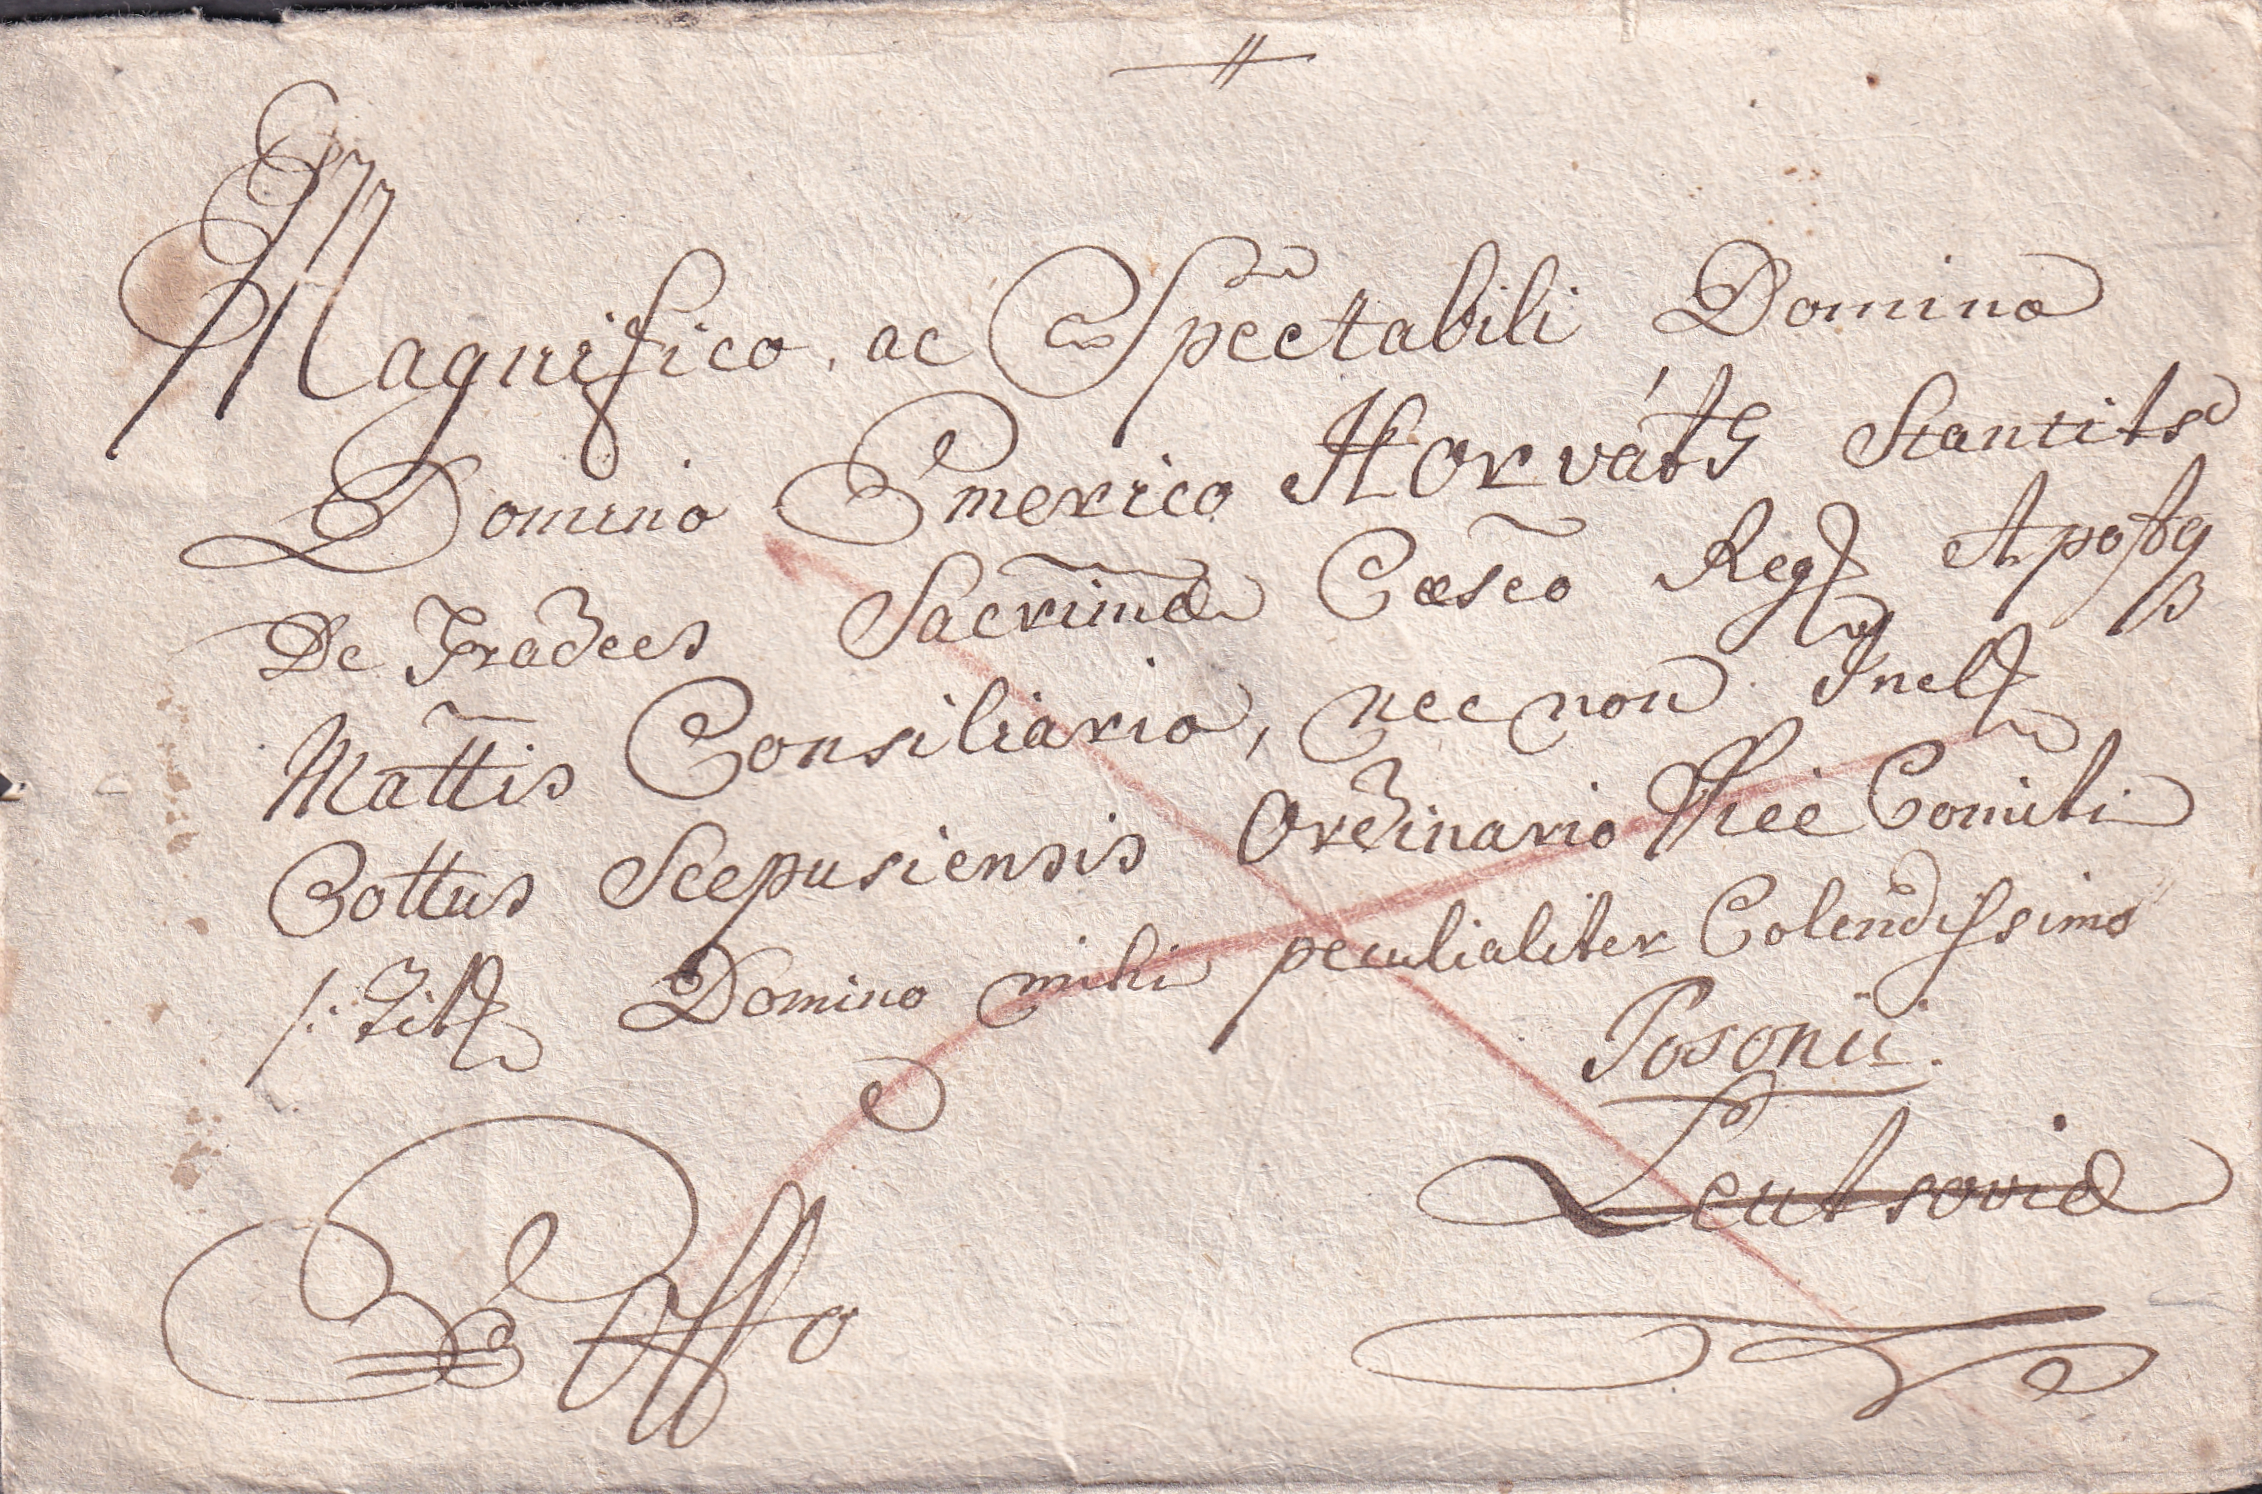 Magnifico, ac Spectabili Domino
Domino Emerico Horváth Stantits
De Gradecs Sacrimae Caeseo Reg Apost
Mattis Consiliario, nec non Incl
Cottus Scepusiensis Ordinario Vice Comiti
/: Titl Domino mihi peculialiter Colendissimo
Posonii.
Leutsovia
Ex Offo